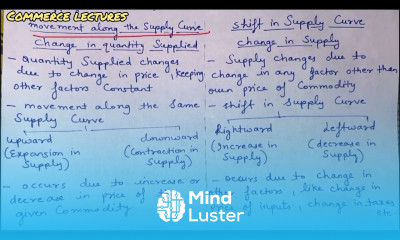 COMMERCE LECTURES
movement along the Supply Curve
Change in quantity Supplied
- quantity Supplied changes
due to change in price, keeping
other factors Constant
- movement along the Same
Supply Curve
upward
(Expansion in
Supply)
downward
(Contraction in
Supply)
- occurs due to increase or
decrease in price of
given Commodity.
Shift in Supply Curve
change in Supply
- Supply changes due to
change in any factor other then
own price of Commodity
- Shift in Supply Curve
Rightward
(Increase in
Supply)
Leftward
(decrease in
Supply)
- occurs due to change in
other factors, like change in
price of inputs, change in taxes
etc.
Mind
Luster